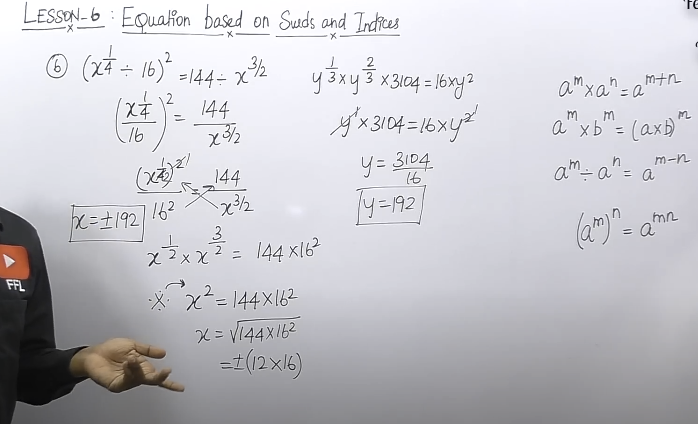 LESSON-6: Equation based on Surds and Indices
⑥ (x^{1/4} ÷ 16)^2 = 144 ÷ x^{3/2}
(x^{1/4}/16)^2 = 144/x^{3/2}
(x^{1/4})^2/16^2 = 144/x^{3/2}
x = ±192
x^{1/2} × x^{3/2} = 144 × 16^2
x^2 = 144 × 16^2
x = √(144 × 16^2)
= ±(12 × 16)
y^{1/3} × y^{2/3} × 3104 = 16 × y^2
y^1 × 3104 = 16 × y^2
y = 3104/16
y = 192
a^m × a^n = a^{m+n}
a^m × b^m = (a × b)^m
a^m ÷ a^n = a^{m-n}
(a^m)^n = a^{mn}
FFL